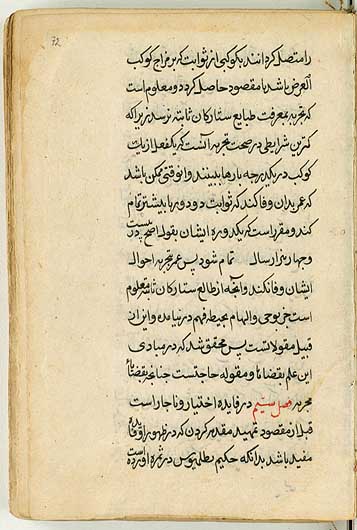 72
را متصل کردانند بکوکبی از ثوابت که بر مزاج کوکب
الغرض باشد تا مقصود حاصل کردد و معلوم است
که تجربه بمعرفت طبایع ستارکان ثابته نرسد زیرا که
کمترین شرایطی در صحت تجربه آنست که یک فعل از یک
کوکب در یک درجه بارها ببینند و این وقتی ممکن باشد
که عمر بدان وفا کند که ثوابت دو دور یا بیشتر تمام
کند و مقرر است که یکدوره ایشان بقول اصح در بیست
و چهار هزار سال تمام شود پس عمر بتجربه احوال
ایشان وفا نکند و آنچه از طالع ستارکان ثابته معلوم
است جز بوحی و الهام بحیطه فهم در نیامده و این از
قبیل مقولاتست پس محقق شد که در مبادی
این علم بقضایا و مقوله حاجتست چنانچه بقضایا
مجربه فصل سیم در فایده اختیار و ناجار است
قبل از مقصود تمهید مقدمه کردن که در ظهور او
مفید باشد بدانکه حکیم بطلمیوس در ثمره آورده است